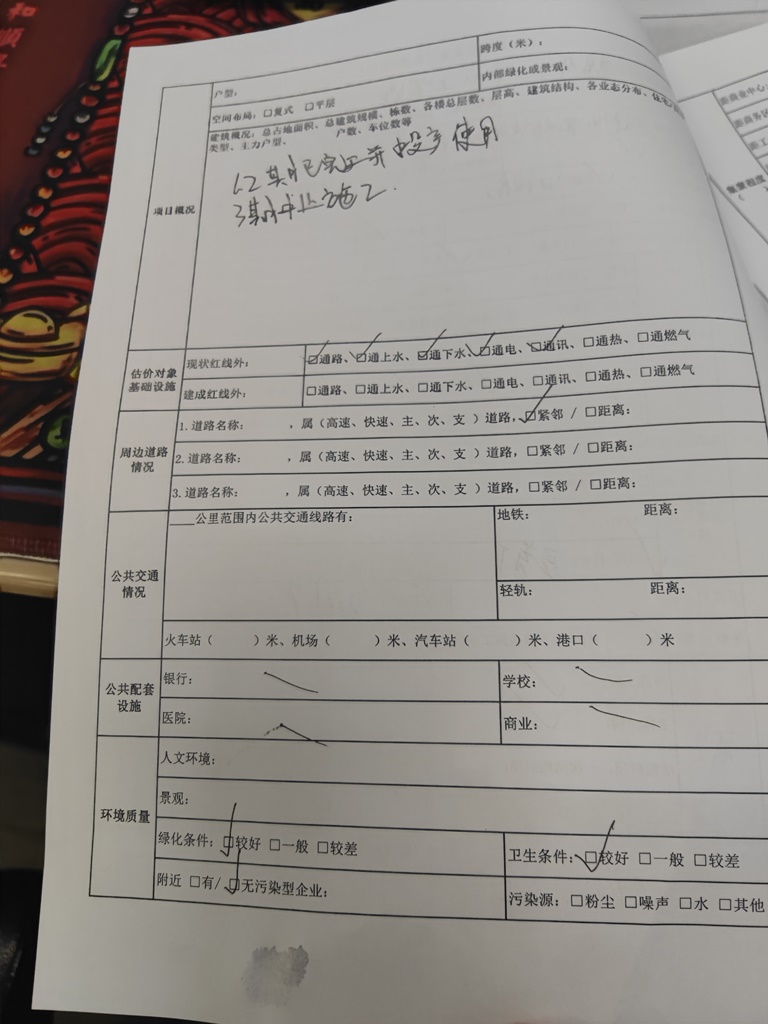 和顺
户型:
跨度（米）:
空间布局: □复式 □平层
内部绿化或景观:
建筑概况: 总占地面积、总建筑规模、栋数、各楼总层数、层高、建筑结构、各业态分布、住宅
类型、主力户型、 户数、车位数等
1.2期已完工并投产使用
3期停止施工.
项目概况
估价对象
基础设施
现状红线外: ☑通路、☑通上水、☑通下水、☑通电、☑通讯、□通热、□通燃气
建成红线外: □通路、□通上水、□通下水、□通电、□通讯、□通热、□通燃气
周边道路
情况
1.道路名称: ,属（高速、快速、主、次、支 ）道路,☑紧邻 / □距离:
2.道路名称: ,属（高速、快速、主、次、支 ）道路,□紧邻 / □距离:
3.道路名称: ,属（高速、快速、主、次、支 ）道路,□紧邻 / □距离:
公共交通
情况
____公里范围内公共交通线路有:
地铁: 距离:
轻轨: 距离:
火车站（ ）米、机场（ ）米、汽车站（ ）米、港口（ ）米
公共配套
设施
银行:
学校:
医院:
商业:
环境质量
人文环境:
景观:
绿化条件: ☑较好 □一般 □较差
卫生条件: ☑较好 □一般 □较差
附近 □有/☑无污染型企业:
污染源: □粉尘 □噪声 □水 □其他
距商业中心
距商务区
距工
集聚程度